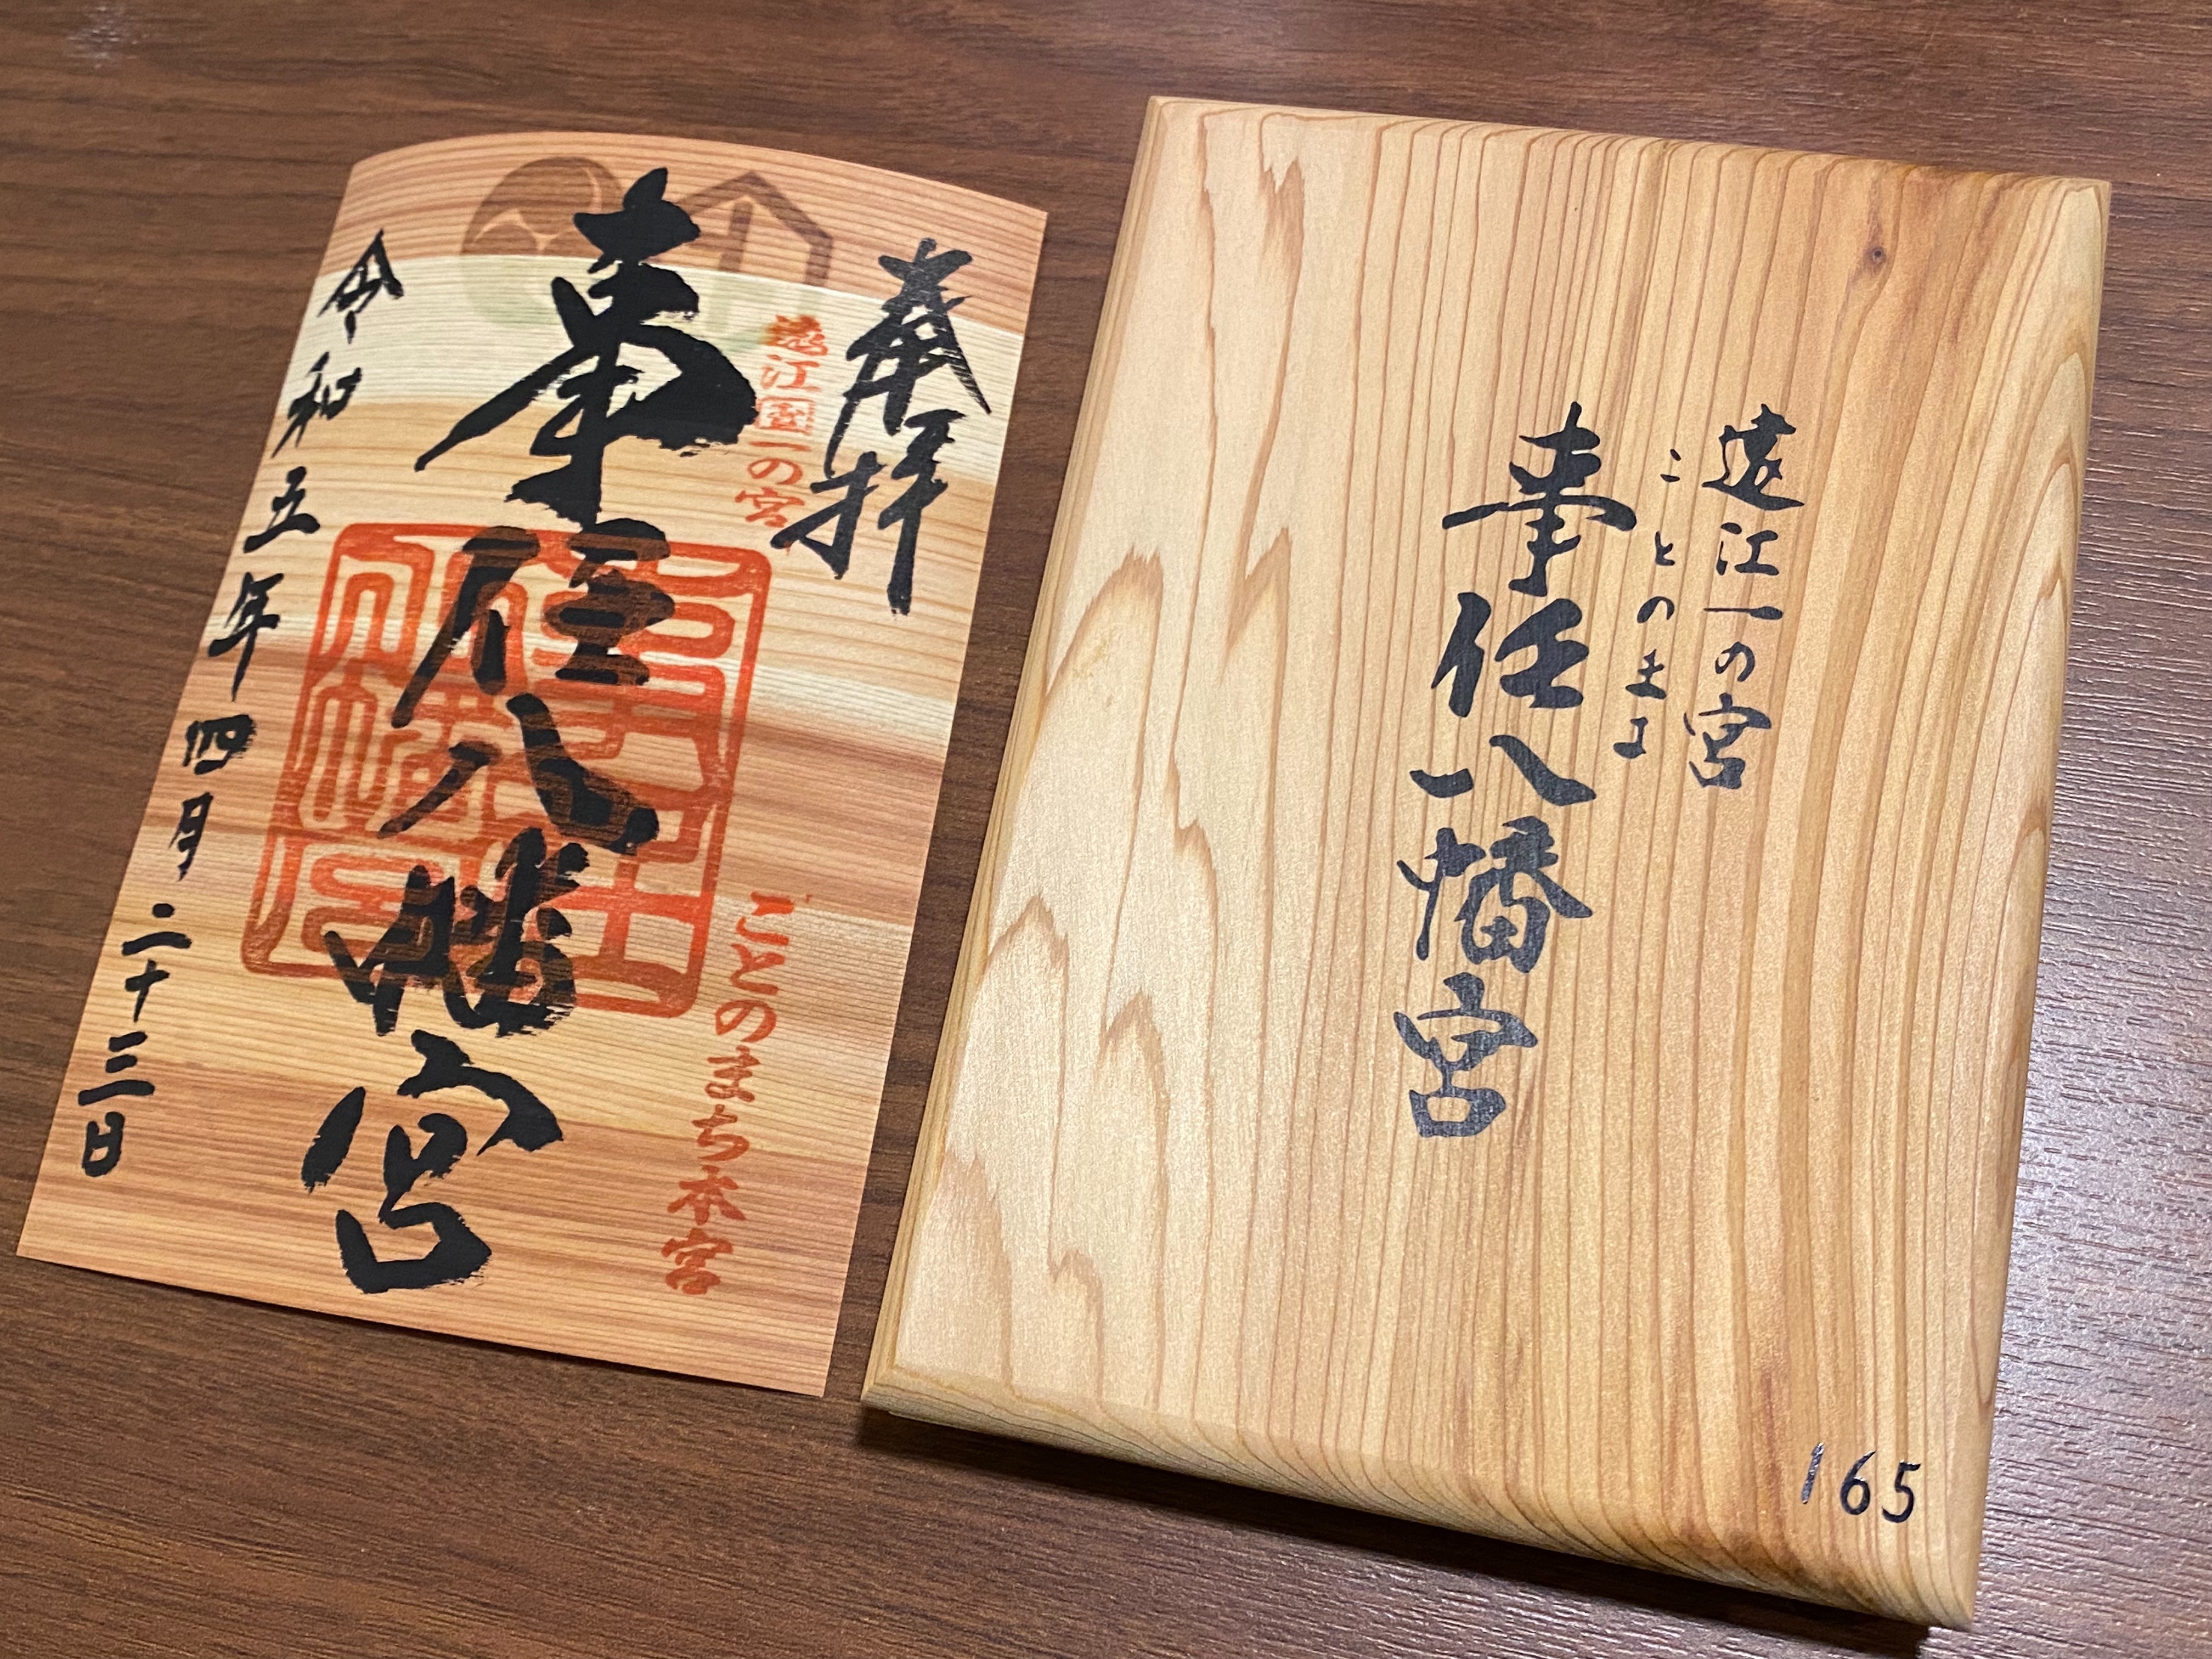 奉拝
遠江国一の宮
ことのまち本宮
事任八幡宮
令和五年四月二十三日
遠江一の宮
ことのまま
事任八幡宮
165